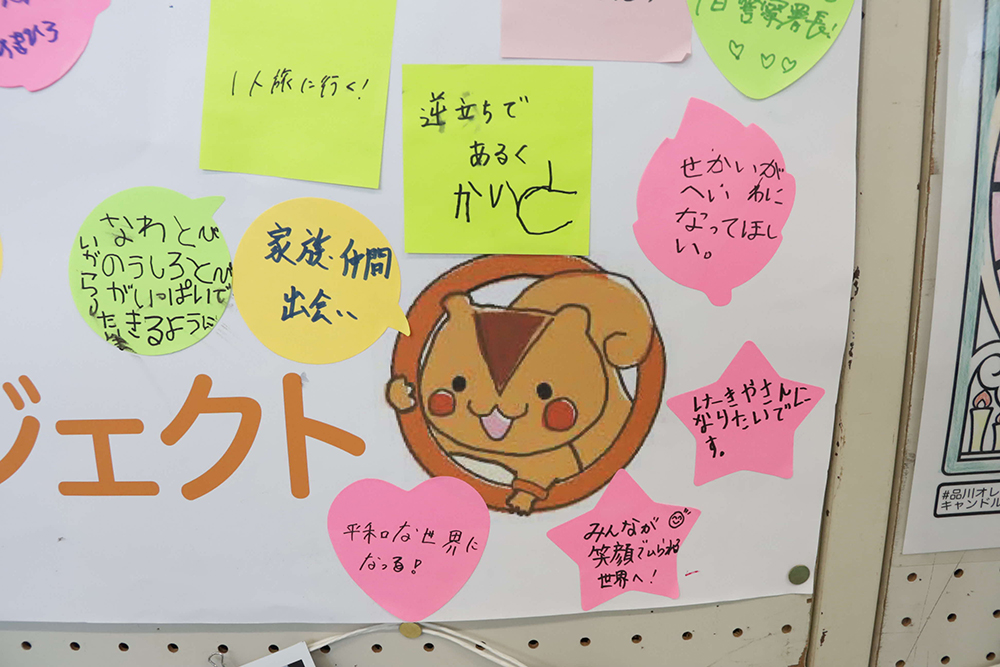 1人旅に行く!
逆立ちで
あるく
1日警察署長!
せかいが
へいわに
なってほし
い。
なわとび
のうしろとび
がいっぱいで
きるように
家族・仲間
出会い
ジェクト
けーきやさんに
なりたいです
す。
平和な世界に
なる!
みんなが
笑顔でいられる
世界へ!
#品川オレ
キャンドル